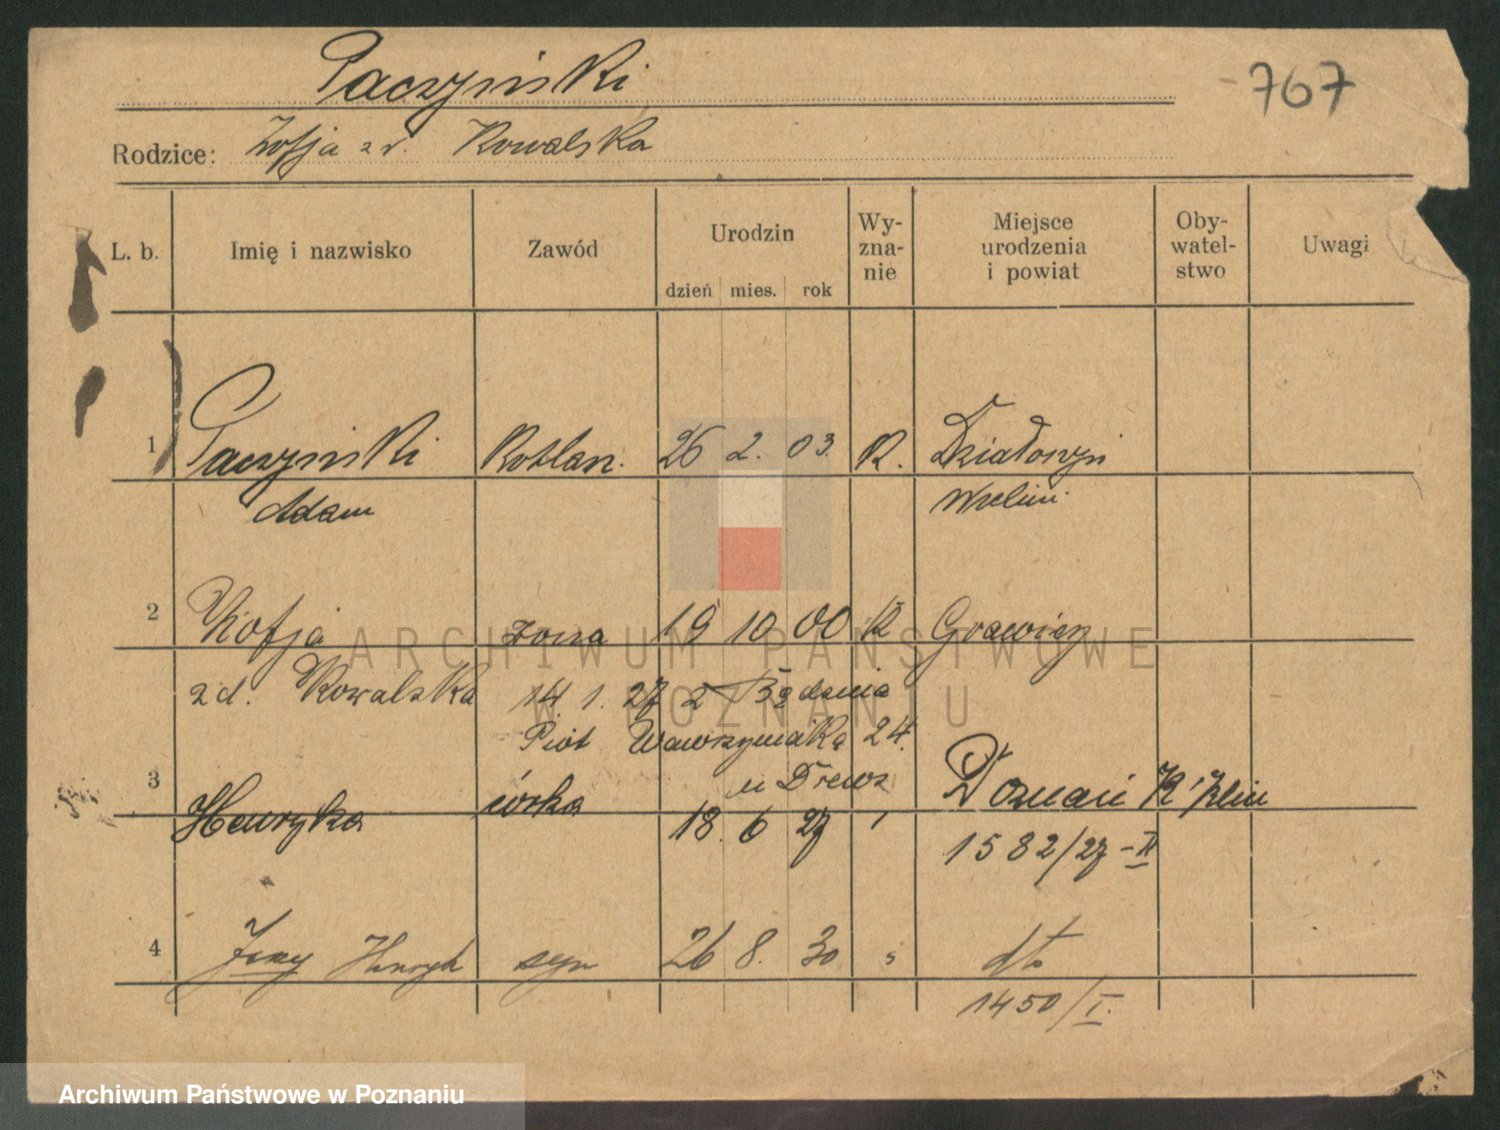 Paczyński
767
Rodzice: Zofja z d. Kowalska
L. b. Imię i nazwisko Zawód Urodzin dzień mies. rok Wy-zna-nie Miejsce urodzenia i powiat Oby-watel-stwo Uwagi
1 Paczyński 26 2. 03. R. Działoszyn
Adam Wieluń.
2 Zofja żona 19 10 00 R
z d. Kowalska 14. 1. 27 z
Piot Wawrzyniaka 24.
u Drews
3 Henryka córka 18. 6 27 Poznań
1582/27-II
4 Jerzy Henryk syn 26 8. 30 " dto
1450/I.
ARCHIWUM PAŃSTWOWE
W POZNANIU
Archiwum Państwowe w Poznaniu